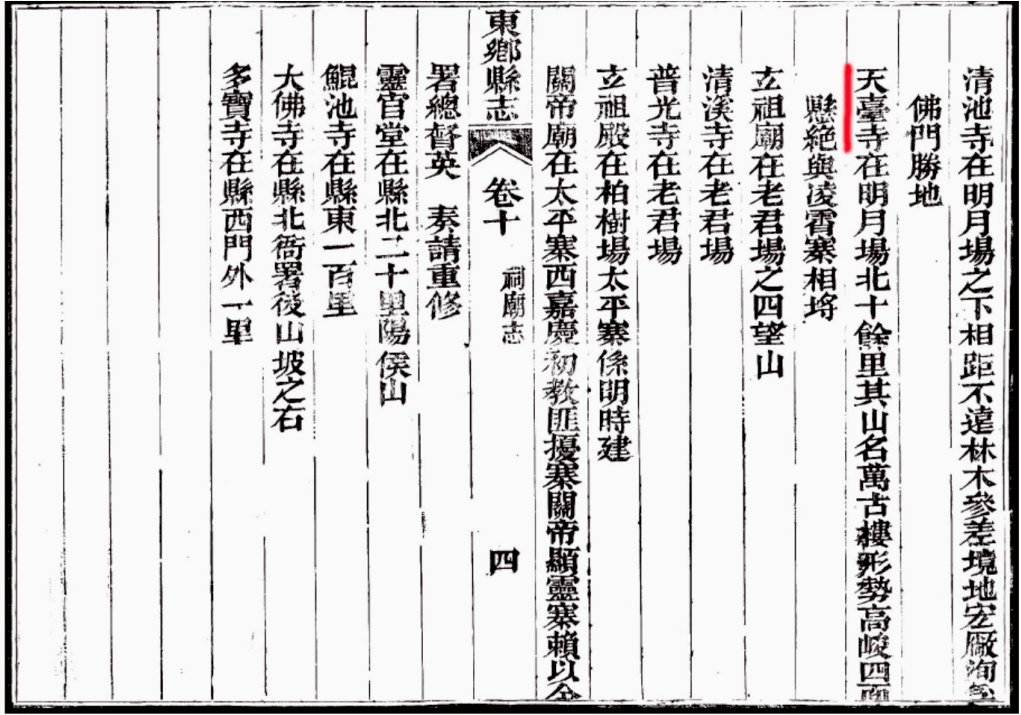 清池寺在明月場之下相距不遠林木參差境地宏厰洵
佛門勝地
天臺寺在明月場北十餘里其山名萬古樓形勢高峻四面
懸絶與凌霄寨相埒
玄祖廟在老君場之四望山
清溪寺在老君場
普光寺在老君場
玄祖殿在柏樹場太平寨係明時建
關帝廟在太平寨西嘉慶初教匪擾寨關帝顯靈寨賴以全
東鄉縣志 卷十 祠廟志 四
署總督英 奏請重修
靈官堂在縣北二十里陽侯山
鯤池寺在縣東一百里
大佛寺在縣北衙署後山坡之右
多寶寺在縣西門外一里